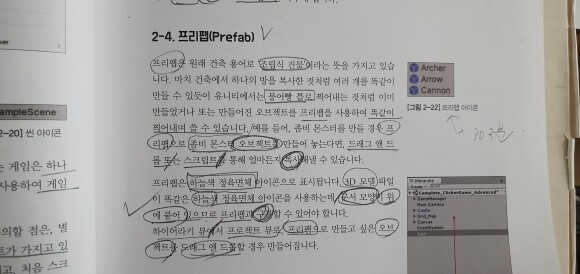 2-4. 프리팹(Prefab)
프리팹은 원래 건축 용어로 '조립식 건물'이라는 뜻을 가지고 있습
니다. 마치 건축에서 하나의 방을 복사한 것처럼 여러 개를 똑같이
만들 수 있듯이 유니티에서는 붕어빵 틀로 찍어내는 것처럼 이미
만들었거나 또는 만들어진 오브젝트를 프리팹을 사용하여 똑같이
찍어내며 쓸 수 있습니다. 예를 들어, 좀비 몬스터를 만들 경우 프
리팹으로 좀비 몬스터 오브젝트를 만들어 놓는다면, 드래그 앤 드
롭 또는 스크립트를 통해 얼마든지 복사해낼 수 있습니다.
프리팹은 하늘색 정육면체 아이콘으로 표시됩니다. 3D 모델 파일
이 똑같은 하늘색 정육면체 아이콘을 사용하는데, 문서 모양이 위
에 붙어 있으므로 프리팹과 구분할 수 있어야 합니다.
하이어라키 뷰에서 프로젝트 뷰로, 프리팹으로 만들고 싶은 오브
젝트를 드래그 앤 드롭할 경우 만들어집니다.
Archer
Arrow
Cannon
[그림 2-22] 프리팹 아이콘
Hierarchy
Complete_ClickerGame_Advanced*
GameManager
Main Camera
Castle
Grid_Map
Canvas
EventSystem
ampleScene
2-20] 씬 아이콘
는 게임은 하나
사용하여 게임
의할 점은, 별
트가 가지고 있
고, 처음 스크